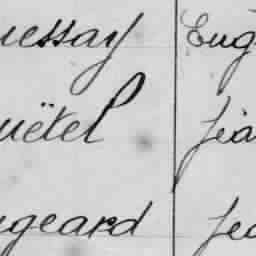 uessay Eug
uëtel Jea
geard Jea